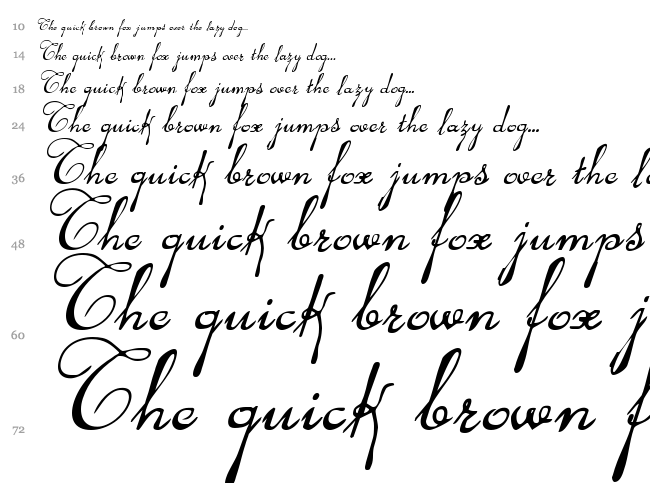 10 The quick brown fox jumps over the lazy dog...
14 The quick brown fox jumps over the lazy dog...
18 The quick brown fox jumps over the lazy dog...
24 The quick brown fox jumps over the lazy dog...
36 The quick brown fox jumps over the la
48 The quick brown fox jumps
60 The quick brown fox j
72 The quick brown f